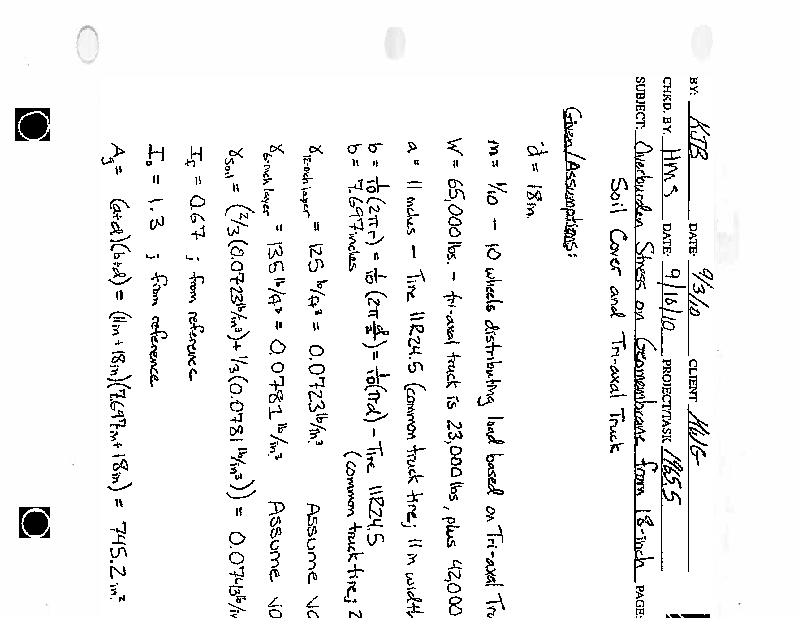 BY: KJB DATE: 9/3/10 CLIENT MWG
CHKD. BY. HMS DATE: 9/10/10 PROJECT/TASK 1965.5
SUBJECT: Overburden Stress on Geomembrane from 18-inch PAGE:
Soil Cover and Tri-axal Truck
Given/Assumptions:
d = 18in.
m = 1/10 - 10 wheels distributing load based on Tri-axal Tru
W = 65,000 lbs. - tri-axal truck is 23,000 lbs, plus 42,000
a = 11 inches - Tire 11R24.5 (common truck tire; 11 in width
b = 1/10 (2πr) = 1/10 (2π d/2) = 1/10 (πd) - Tire 11R24.5
b = 7.697 inches (common truck tire; 2
γ 12-inch layer = 125 lb/ft³ = 0.0723 lb/in³ Assume
γ 6-inch layer = 135 lb/ft³ = 0.0781 lb/in³ Assume
γsoil = (2/3(0.0723 lb/in³) + 1/3(0.0781 lb/in³)) = 0.0743 lb/in
= 0.67 ; from reference
= 1.3 ; from reference
= (a+d)(b+d) = (11in + 18in)(7.697in + 18in) = 745.2 in²